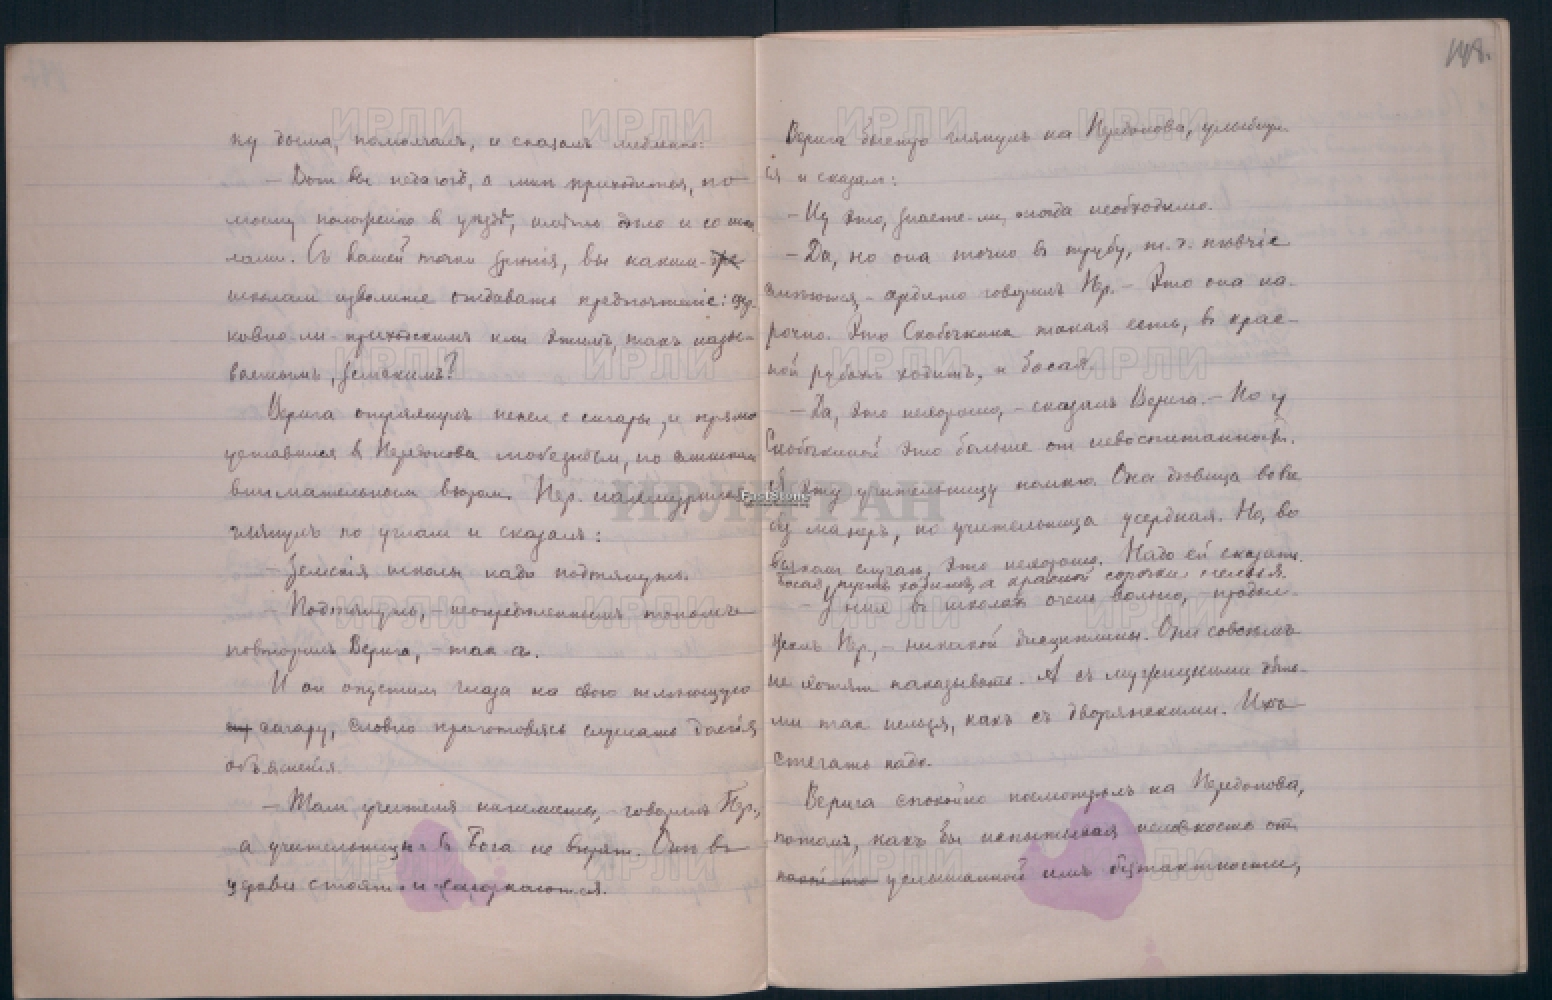 ку дыма, помолчалъ, и сказалъ любезно:
– Вотъ вы педагогъ, а мнѣ приходится, по
моему положенію в уѣздѣ, имѣть дѣло и со шко
лами. Съ вашей точки зрѣнія, вы какимъ
школамъ изволите отдавать предпочтеніе: цер-
ковно-ли-приходскимъ или этимъ, такъ назы-
ваемымъ, земскимъ?
Верига отряхнулъ пепел с сигары, и прямо
уставился в Передонова любезным, но слишкомъ
внимательнымъ взором. Пер. нахмурился,
глянулъ по углам и сказалъ:
– Земскія школы надо подтянуть.
– Подтянуть, – неопредѣленнымъ тономъ
повторилъ Верига, – так съ.
И он опустил глаза на свою тлѣющую
сигару, словно приготовясь слушать долгія
объясненія.
– Там учителя нигилисты, – говорилъ Пер.,
а учительницы в Бога не вѣрят. Онѣ въ
церкви стоятъ и сморкаются.
148.
Верига быстро глянулъ на Передонова, улыбнул-
ся и сказалъ:
– Ну это, знаете-ли, иногда необходимо.
– Да, но она точно въ трубу, т. ч. пѣвчіе
смѣются – сердито говорилъ Пер. – Это она на-
рочно. Это Скобочкина такая есть, въ крас-
ной рубахѣ ходитъ, и босая.
– Да, это нехорошо, – сказалъ Верига. – Но у
Скобочкиной это больше от невоспитанности.
Я эту учительницу помню. Она дѣвица вовсе
без манеръ, но учительница усердная. Но, во
всякомъ случаѣ, это нехорошо. Надо ей сказать.
Босая, пусть ходитъ, а красной сорочки нельзя.
– У них въ школахъ очень вольно, – продол-
жалъ Пер., – никакой дисциплины. Они совсѣмъ
не хотятъ наказывать. А съ мужицкими дѣть-
ми такъ нельзя, какъ съ дворянскими. Ихъ
стегать надо.
Верига спокойно посмотрѣлъ на Передонова,
потомъ, какъ бы испытывая неловкость от
услышанной имъ безтактности,
ИРЛИ
ИРЛИ РАН